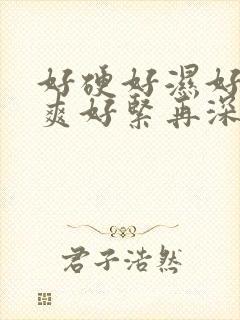 好硬好濕好
爽好緊再深
君子浩然